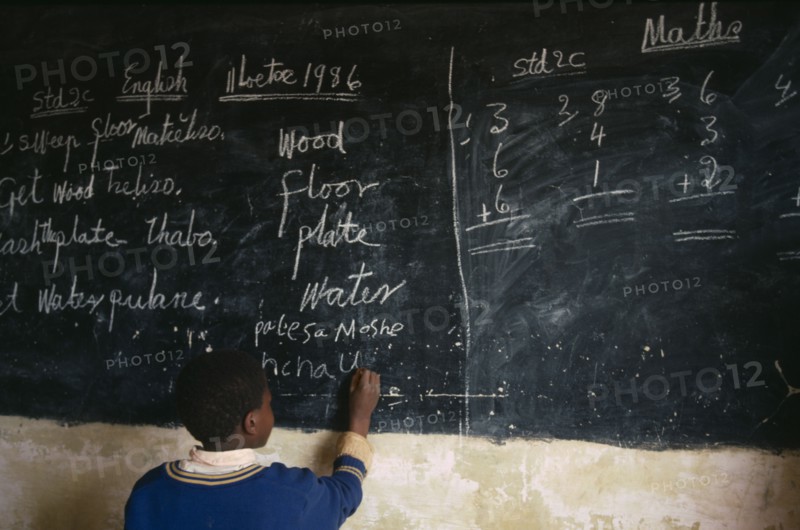 English 11 Loetse 1986
Std 2c
1, sweep floor Mateliso.
Get wood Teliso.
ash the plate Thabo.
t Water pulane.
Wood
floor
plate
Water
palesa Moshe
hchaU
Maths
std 2c
1, 3 2, 8 3, 6 4,
6 4 3
+ 6 1 + 2 +